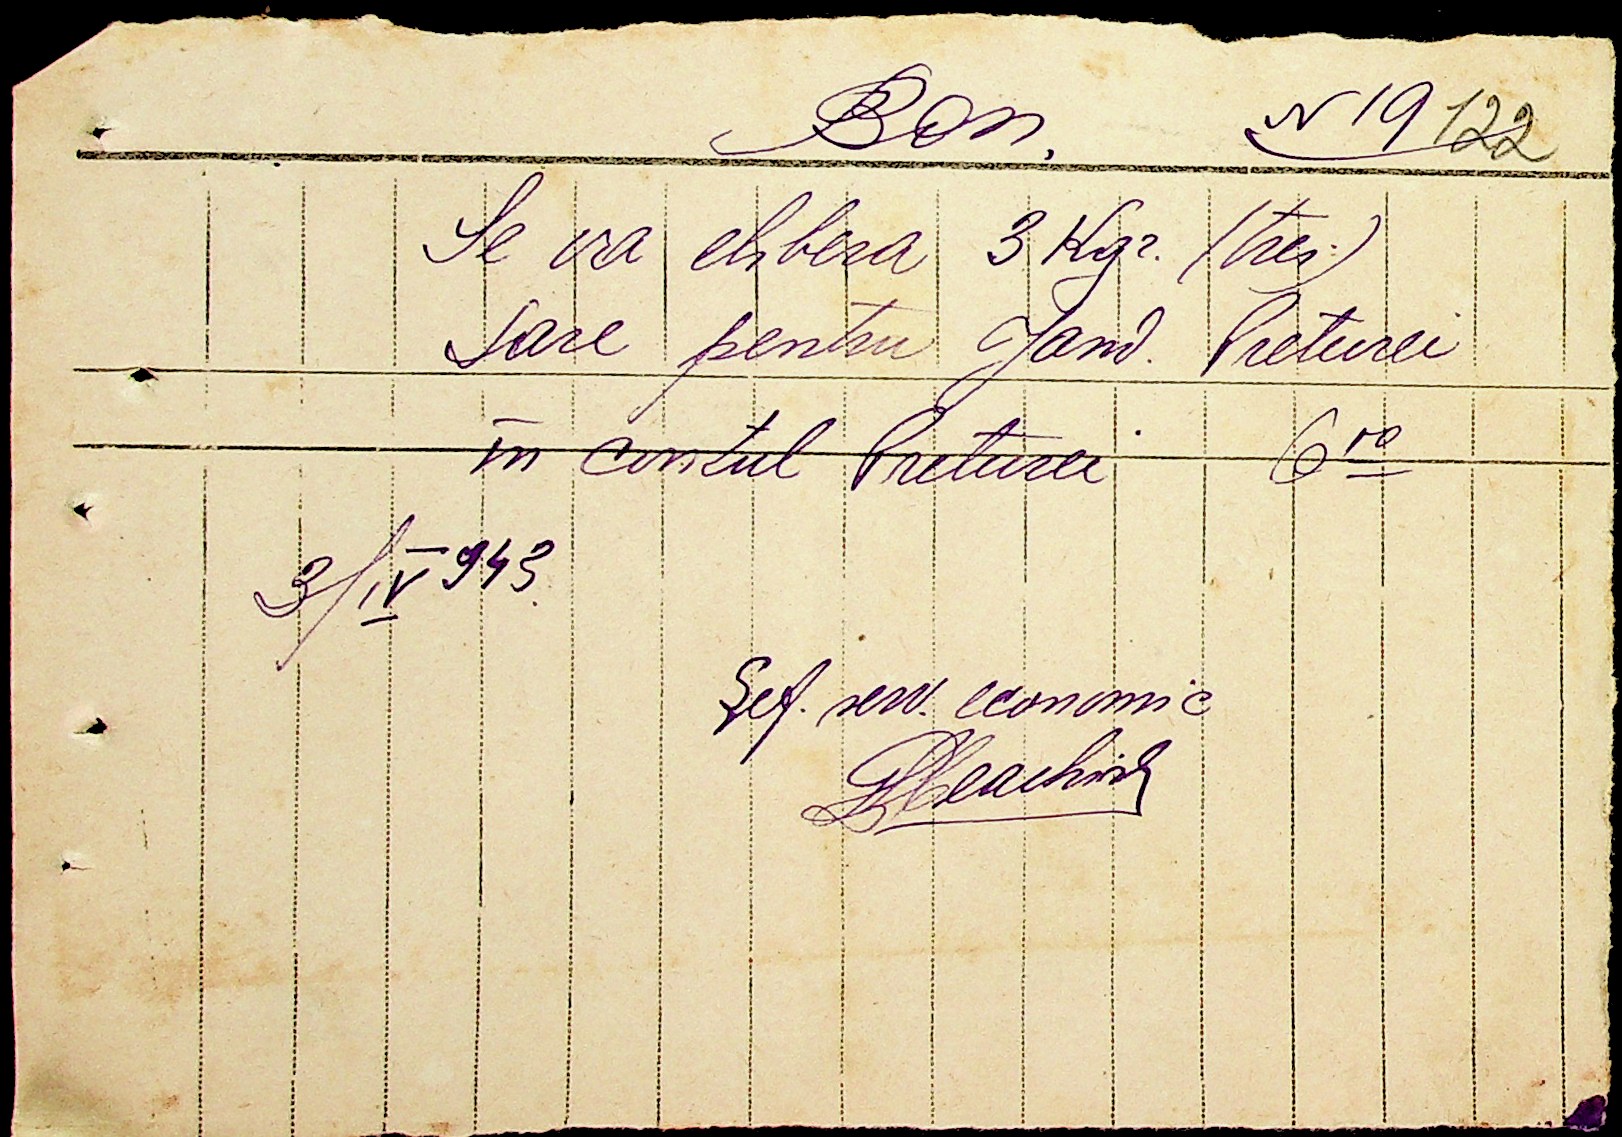 Bon. N 19 122
Se va elibera 3 Kgr. (trei)
sare pentru Jand. Preturei
în contul Preturei 6 ro
3/IV 943.
Șef. serv. economic